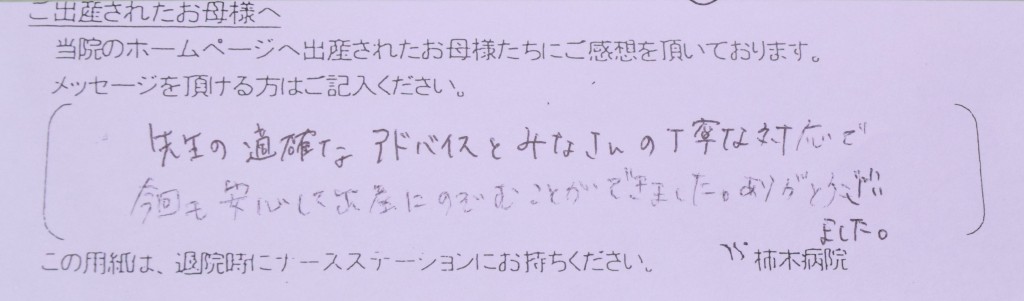 ご出産されたお母様へ
当院のホームページへ出産されたお母様たちにご感想を頂いております。
メッセージを頂ける方はご記入ください。
先生の適確な アドバイスと みなさんの丁寧な対応で
今回も 安心して出産にのぞむことができました。ありがとうござい
ました。
この用紙は、退院時にナースステーションにお持ちください。 柿木病院